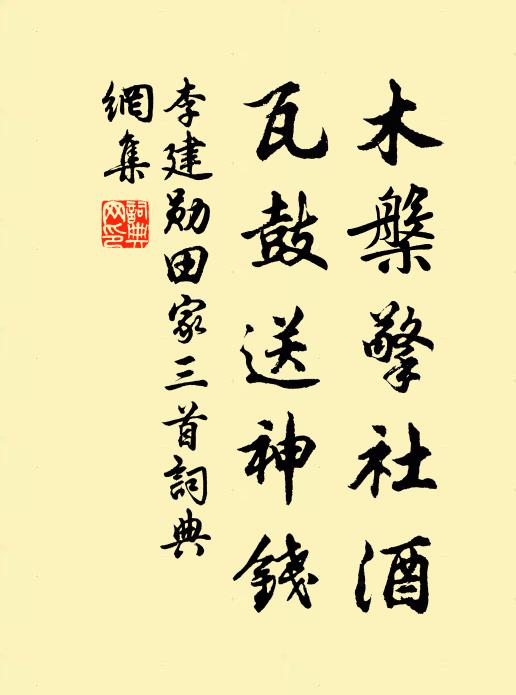 木槃擎社酒
瓦鼓送神錢
李建勛田家三首詞典
網集
詞典
网印